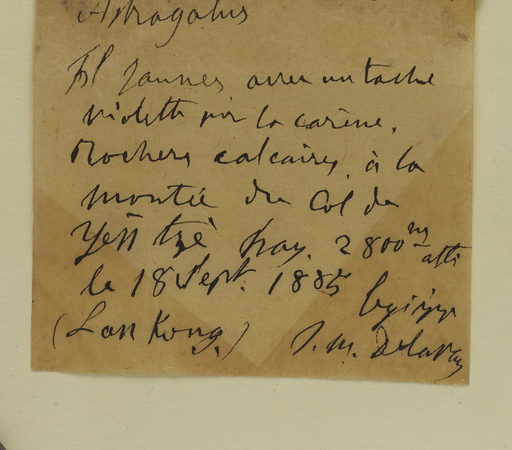 Astragalus
Fl jaunes avec un tache
violette sur la carène.
Rochers calcaires, à la
montée du Col de
Yên tzè hay. 2800 m alt
le 18 Sept. 1885
(Lan Kong.) J. M. Delavay